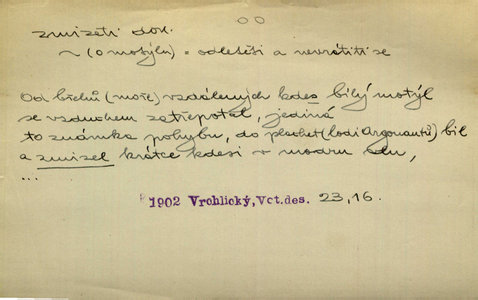 zmizeti dok.
~ (o motýlu) = odletěti a nevrátiti se
Od břehů (moře) vzdálených kdes bílý motýl
se vzduchem zatřepotal, jediná
to známka pohybu, do plachet (lodi Argonautů) bil
a zmizel krátce kdesi v modru dnu,
...
1902 Vrchlický, Vct.des. 23,16.